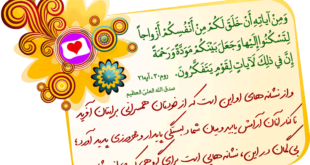 وَمِنْ آيَاتِهِ أَنْ خَلَقَ لَكُمْ مِنْ أَنْفُسِكُمْ أَزْوَاجًا
لِتَسْكُنُوا إِلَيْهَا وَجَعَلَ بَيْنَكُمْ مَوَدَّةً وَرَحْمَةً
إِنَّ فِي ذَلِكَ لَآيَاتٍ لِقَوْمٍ يَتَفَكَّرُونَ.
روم ٣٠، آیه ٢١
صدق الله العلیّ العظیم
و از نشانه‌های او این است که از خودتان همسرانی برایتان آفرید
تا کنار آنان آرامش یابید و میان شما دلبستگی پایدار و مهرورزی پدید آورد؛
بی‌گمان در این، نشانه‌هایی است برای گروهی که